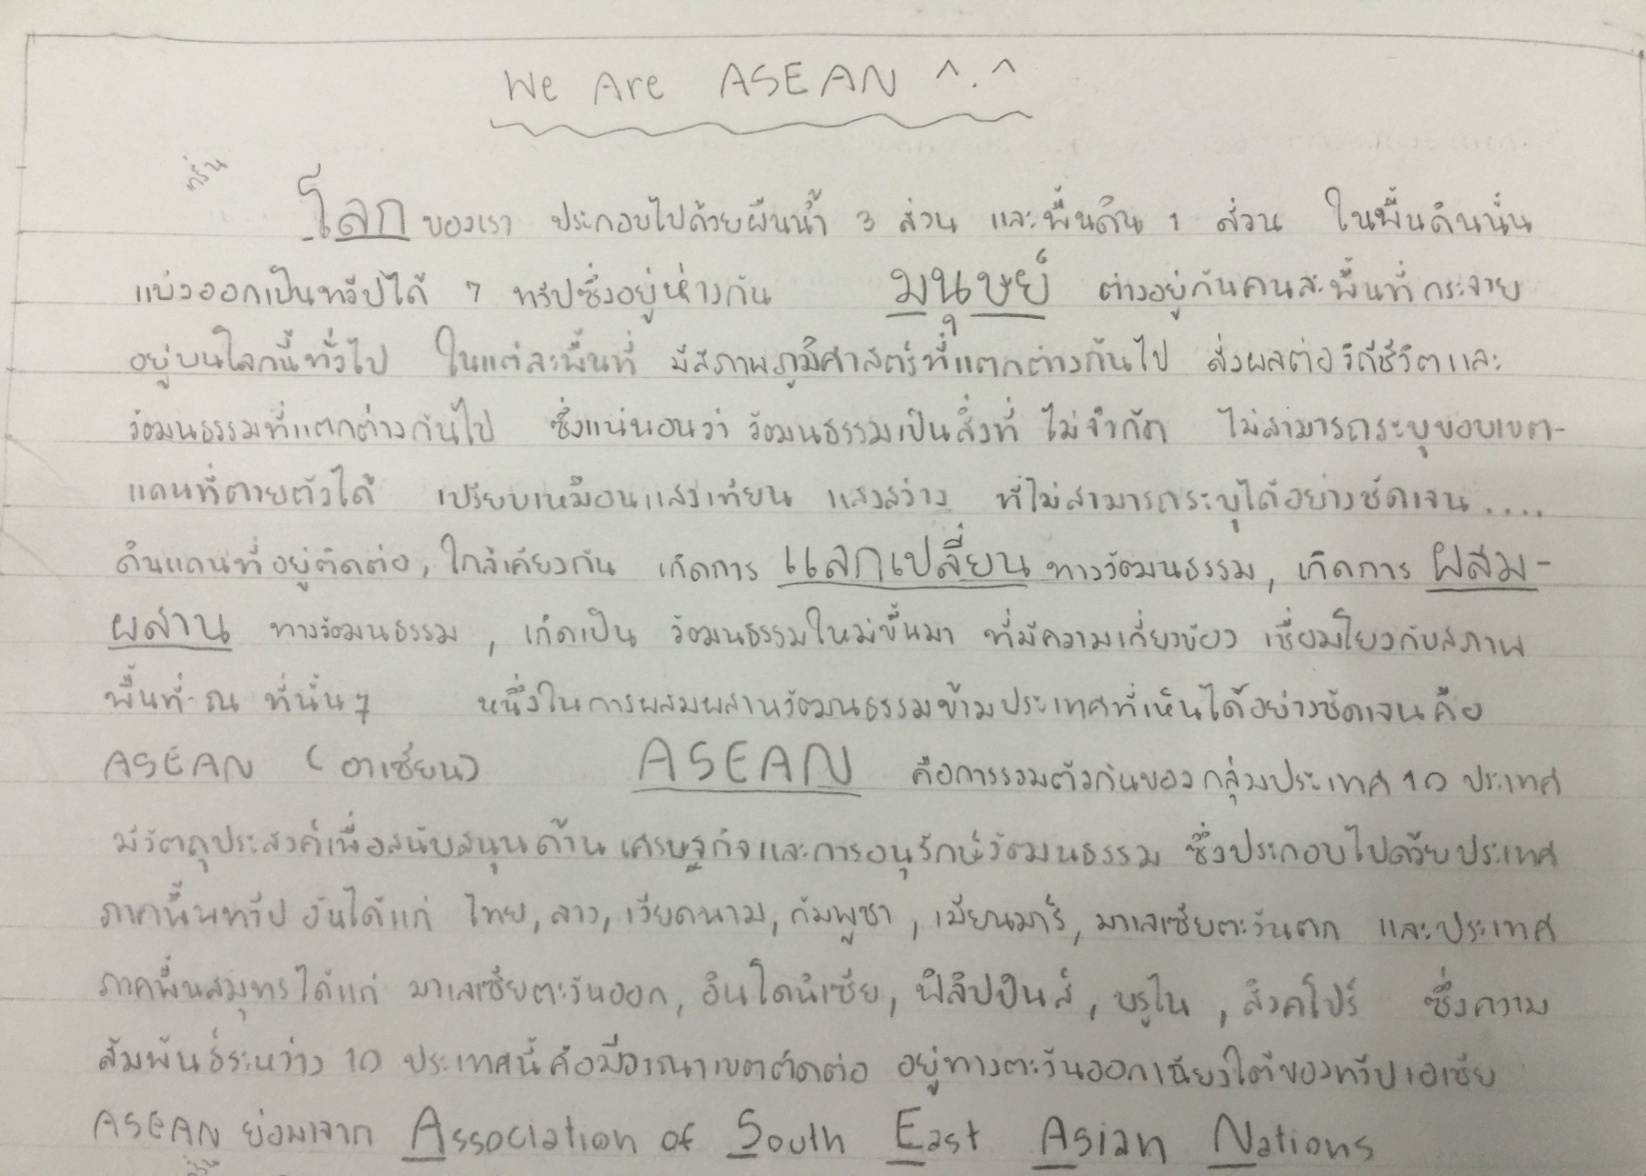 We Are ASEAN ^.^
โลกของเรา ประกอบไปด้วยผืนน้ำ 3 ส่วน และพื้นดิน 1 ส่วน ในพื้นดินนั้น
แบ่งออกเป็นทวีปได้ 7 ทวีปซึ่งอยู่ห่างกัน มนุษย์ ต่างอยู่กันคนละพื้นที่กระจาย
อยู่บนโลกนี้ทั่วไป ในแต่ละพื้นที่ มีสภาพภูมิศาสตร์ที่แตกต่างกันไป ส่งผลต่อวิถีชีวิตและ
วัฒนธรรมที่แตกต่างกันไป ซึ่งแน่นอนว่า วัฒนธรรมเป็นสิ่งที่ ไม่จำกัด ไม่สามารถระบุขอบเขต-
แดนที่ตายตัวได้ เปรียบเหมือนแสงเทียน แสงสว่าง ที่ไม่สามารถระบุได้อย่างชัดเจน....
ดินแดนที่อยู่ติดต่อ, ใกล้เคียงกัน เกิดการ แลกเปลี่ยน ทางวัฒนธรรม, เกิดการ ผสม-
ผสาน ทางวัฒนธรรม, เกิดเป็น วัฒนธรรมใหม่ขึ้นมา ที่มีความเกี่ยวข้อง เชื่อมโยงกับสภาพ
พื้นที่ ณ ที่นั้นๆ หนึ่งในการผสมผสานวัฒนธรรมข้ามประเทศที่เห็นได้อย่างชัดเจนคือ
ASEAN (อาเซียน) ASEAN คือการรวมตัวกันของกลุ่มประเทศ 10 ประเทศ
มีวัตถุประสงค์เพื่อสนับสนุนด้าน เศรษฐกิจและการอนุรักษ์วัฒนธรรม ซึ่งประกอบไปด้วยประเทศ
ภาคพื้นทวีป อันได้แก่ ไทย, ลาว, เวียดนาม, กัมพูชา, เมียนมาร์, มาเลเซียตะวันตก และประเทศ
ภาคพื้นสมุทรได้แก่ มาเลเซียตะวันออก, อินโดนิเซีย, ฟิลิปปินส์, บรูไน, สิงคโปร์ ซึ่งความ
สัมพันธ์ระหว่าง 10 ประเทศนี้ คือมีอาณาเขตติดต่อ อยู่ทางตะวันออกเฉียงใต้ของทวีปเอเชีย
ASEAN ย่อมาจาก Association of South East Asian Nations